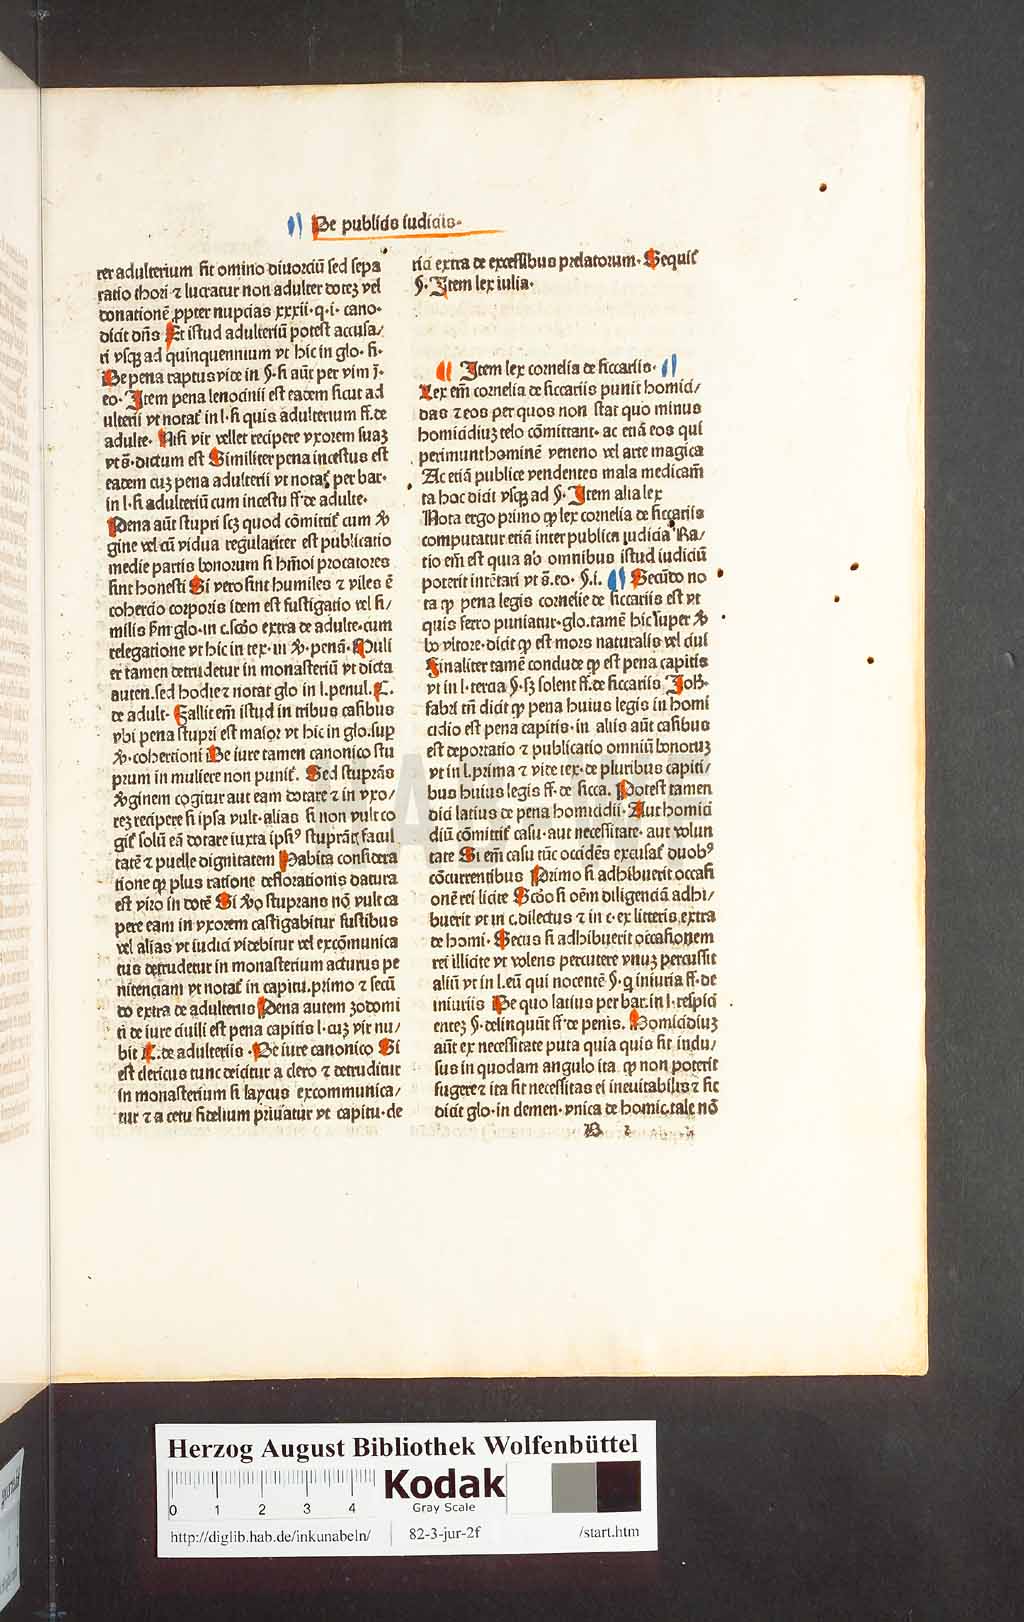 De publicis iudiciis.
ter adulterium fit omino diuorciū sed sepa
ratio thori ⁊ lucratur non adulter dotez vel
donationē ꝓpter nupcias xxxii. q. i. cano.
dicit dn̄s Et istud adulteriū potest accusa/
ri vsqꝫ ad quinquennium vt hic in glo. fi.
De pena raptus vide in §. si aūt per vim j.
eo. Item pena lenocinii est eadem sicut ad
ulterii vt notat᷑ in l. si quis adulterium ff. de
adulte. Nisi vir vellet recipere vxorem suaz
vt s̄. dictum est Similiter pena incestus est
eadem cuz pena adulterii vt notat᷑ per bar.
in l. si adulteriū cum incestu ff. de adulte.
Pena aūt stupri scꝫ quod cōmittit᷑ cum v̓
gine vel cū vidua regulariter est publicatio
medie partis bonorum si hm̄oi procatores
sint honesti Si vero sint humiles ⁊ viles ē
cohercio corporis idem est fustigatio vel si/
milis ẜm glo. in c. scd̄o extra de adulte. cum
relegatione vt hic in tex. in v̓. penā. Muli
er tamen detrudetur in monasteriū vt dicta
auten. sed hodie ⁊ notat glo in l. penul. C.
de adult. Fallit em̄ istud in tribus casibus
vbi pena stupri est maior vt hic in glo. sup
v̓. cohertioni De iure tamen canonico stu
prum in muliere non punit᷑. Sed stuprās
v̓ginem cogitur aut eam dotare ⁊ in vxo/
rez recipere si ipsa vult. alias si non vult co
git᷑ solū eā dotare iuxta ipsiꝰ stuprātꝭ facul
tatē ⁊ puelle dignitatem Habita considera
tione ꝙ plus ratione deflorationis datura
est viro in dotē Si v̓o stuprans nō vult ca
pere eam in vxorem castigabitur fustibus
vel alias vt iudici videbitur vel excōmunica
tus detrudetur in monasterium acturus pe
nitenciam vt notat᷑ in capitu. primo ⁊ secū
do extra de adulteriis Pena autem zodomi
ti de iure ciuili est pena capitis l. cuz vir nu/
bit C. de adulteriis. De iure canonico Si
est clericus tunc deicitur a clero ⁊ detruditur
in monasterium si laycus excommunica/
tur ⁊ a cetu fidelium priuatur vt capitu. de
riā extra de excessibus prelatorum. Sequit᷑
§. Item lex iulia.
Item lex cornelia de siccariis.
Lex em̄ cornelia de siccariis punit homici/
das ⁊ eos per quos non stat quo minus
homicidiuz telo cōmittant. ac etiā eos qui
perimunt hominē veneno vel arte magica
Ac etiā publice vendentes mala medicam̄
ta hoc dicit vsqꝫ ad §. Item alia lex
Nota ergo primo ꝙ lex cornelia de siccariis
computatur etiā inter publica iudicia Ra/
tio em̄ est quia ab omnibus istud iudiciū
poterit intētari vt s̄. eo. §. i. Secūdo no
ta ꝙ pena legis cornelie de siccariis est vt
quis ferro puniatur. glo. tamē hic super v̓
bo vltore. dicit ꝙ est mors naturalis vel ciuī
Finaliter tamē conclude ꝙ est pena capitis
vt in l. tercia §. sꝫ solent ff. de siccariis Joh.
fabri tn̄ dicit ꝙ pena huius legis in homi
cidio est pena capitis. in aliis aūt casibus
est deportatio ⁊ publicatio omniū bonoruz
vt in l. prima ⁊ vide tex. de pluribus capiti/
bus huius legis ff. de sicca. Potest tamen
dici latius de pena homicidii. Aut homici
diū cōmittit᷑ casu. aut necessitate. aut volun
tate Si em̄ casu tūc occidēs excusat᷑ duobꝰ
cōcurrentibus Primo si adhibuerit occasi
onē rei licite Scd̄o si oēm diligenciā adhi/
buerit vt in c. dilectus ⁊ in c. ex litteris extra
de homi. Secus si adhibuerit occasionem
rei illicite vt volens percutere vnuz percussit
aliū vt in l. eū qui nocentē §. q̄ iniuria ff. de
iniuriis De quo latius per bar. in l. respici
entez §. delinquūt ff. de penis. Homicidiuz
aūt ex necessitate puta quia quis sit indu/
sus in quodam angulo ita ꝙ non poterit
fugere ⁊ ita sit necessitas ei ineuitabilis ⁊ sic
dicit glo. in clemen. vnica de homic. tale nō
B 2
Herzog August Bibliothek Wolfenbüttel
0 1 2 3 4
Kodak
Gray Scale
http://diglib.hab.de/inkunabeln/ 82-3-jur-2f /start.htm